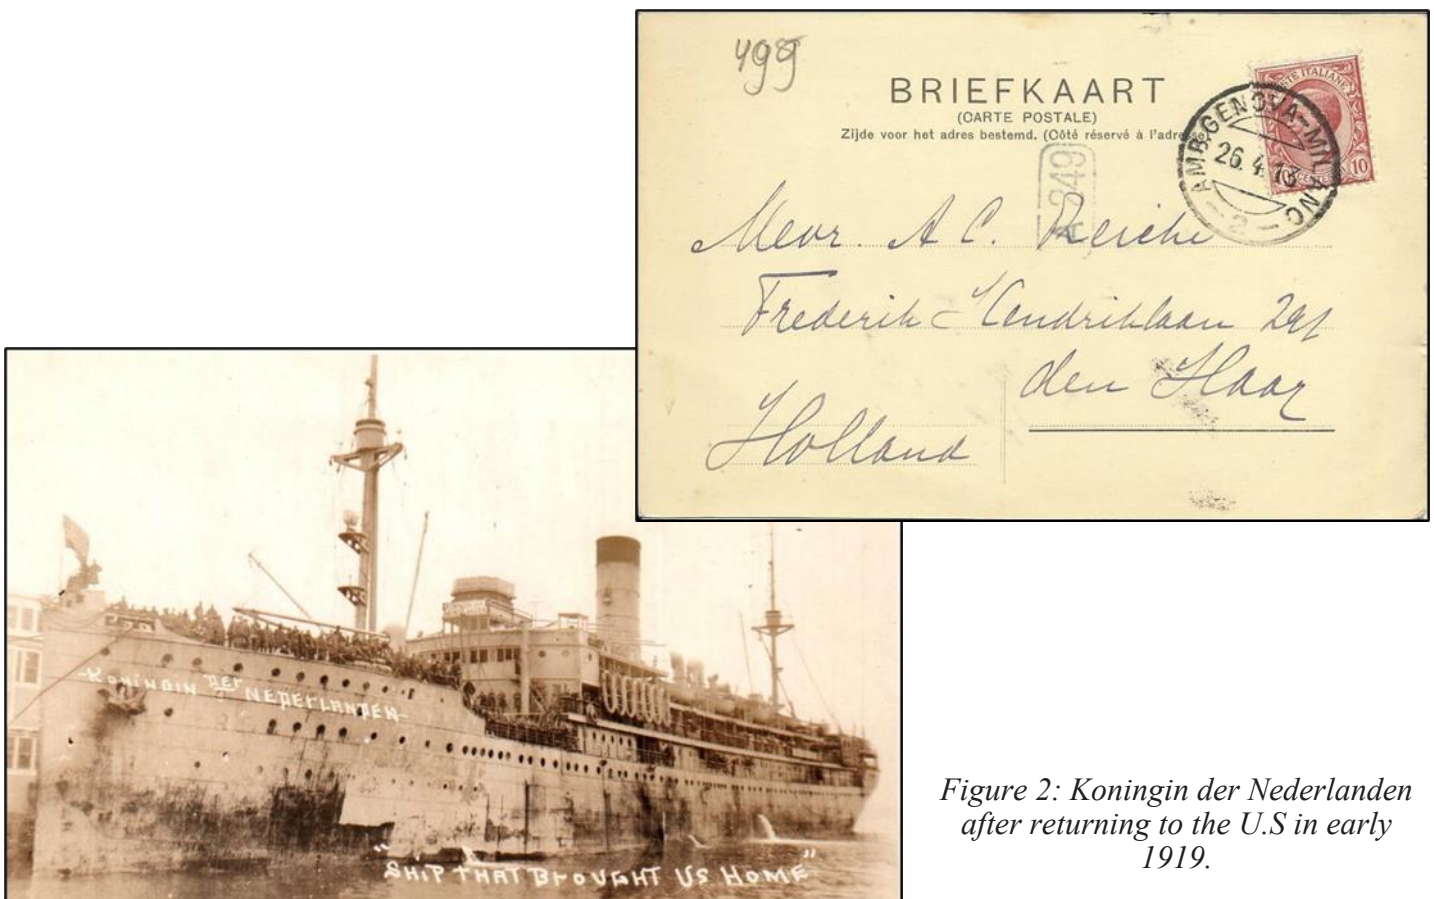 499
BRIEFKAART
(CARTE POSTALE)
Zijde voor het adres bestemd. (Côté réservé à l'adresse)
POSTE ITALIANE
10
AMB. GENOVA-MILANO
26.4.13
2
A 249
Mevr. A C. Reiche
Frederik Hendriklaan
den Haag
Holland
-KONINGIN DER NEDERLANDEN-
"SHIP THAT BROUGHT US HOME"
Figure 2: Koningin der Nederlanden
after returning to the U.S in early
1919.